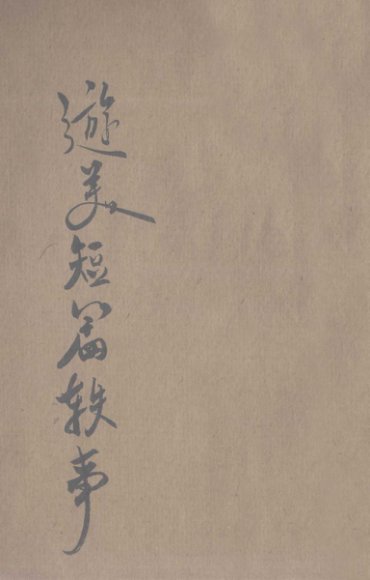 遊美短篇軼事